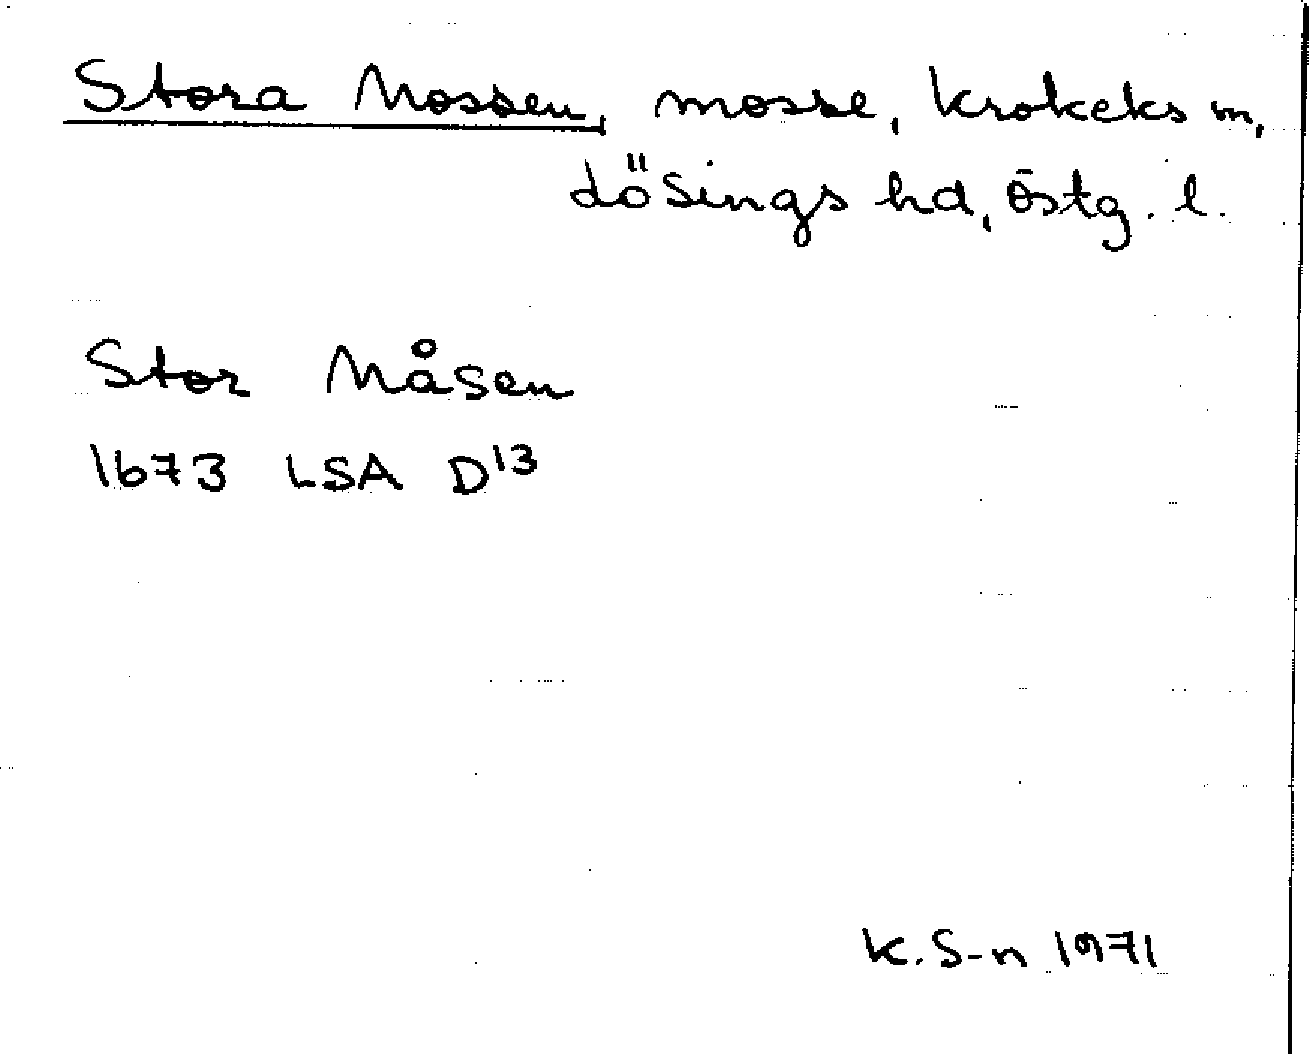 Stora Mossen, mosse, Krokeks sn,
Lösings hd, Östg. l.
Stor Måsen
1673 LSA D13
K. S-n 1971